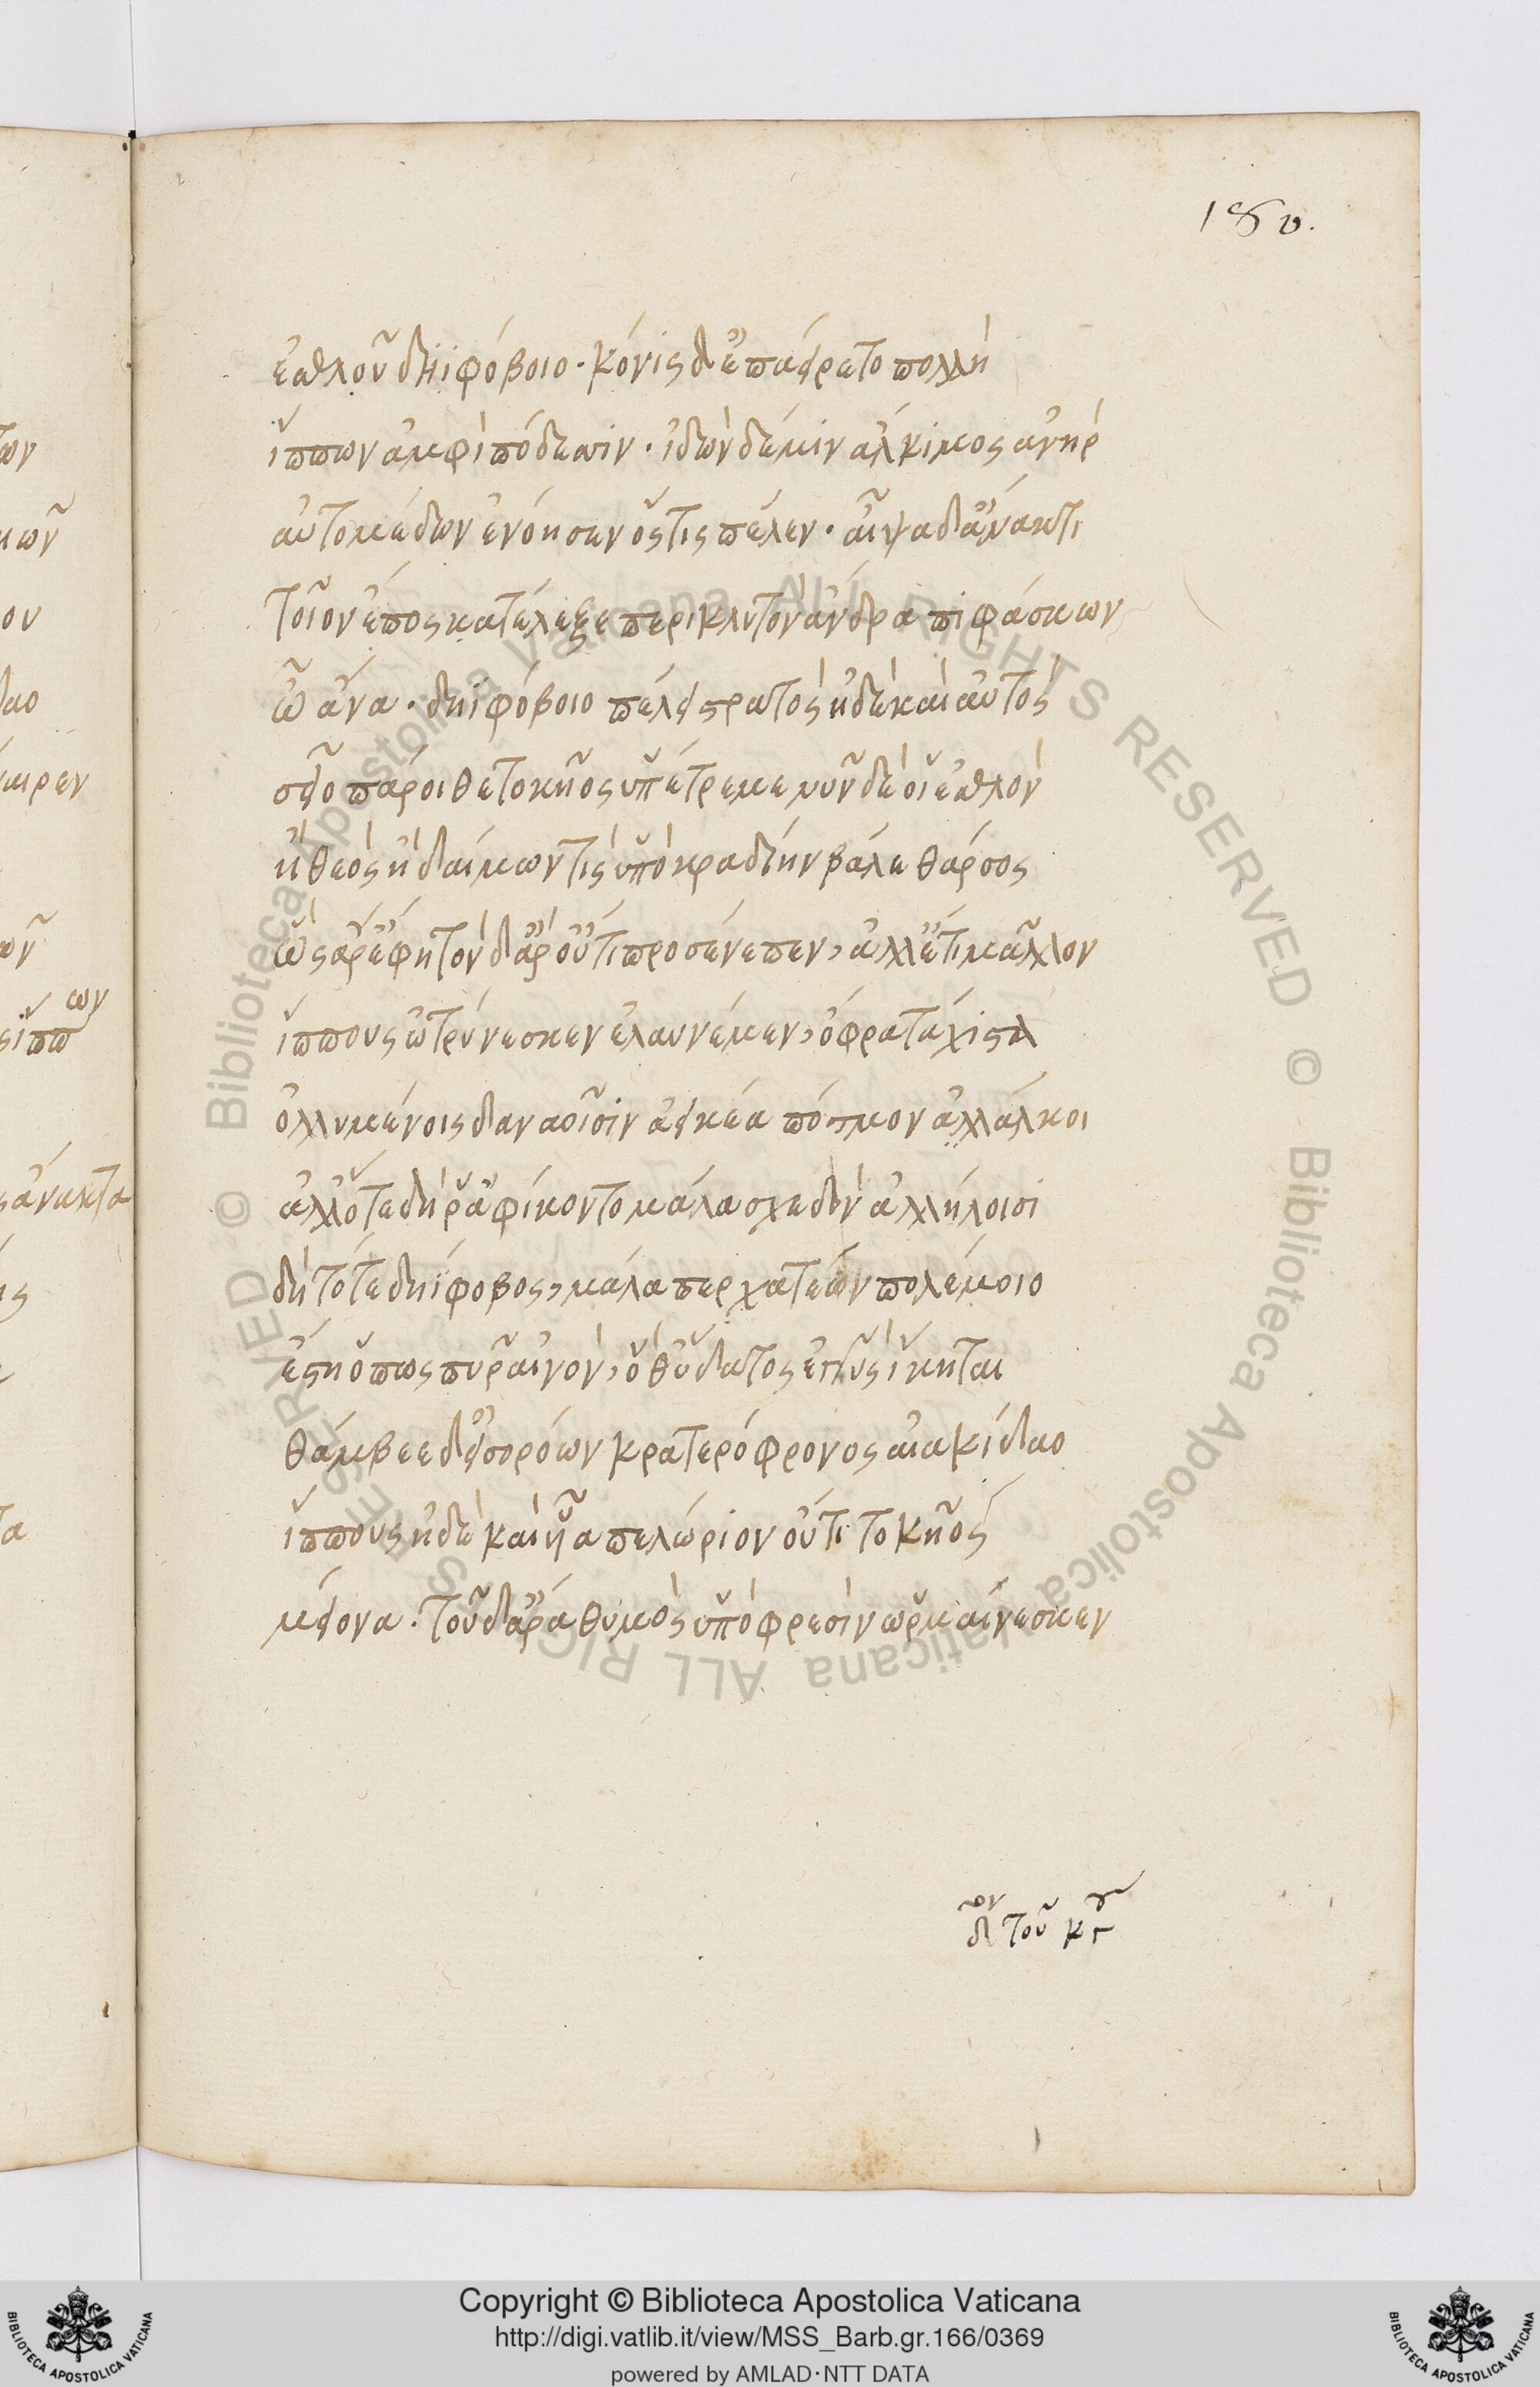 180.
ἐσθλοῦ δηϊφόβοιο. κόνις δ' ἐπαείρετο πολλὴ
ἵππων ἀμφὶ πόδεσσιν. ἰδὼν δέ μιν ἄλκιμος ἀνὴρ
αὐτομέδων ἐνόησεν ὅς τις πέλεν. αἶψα δ' ἄνακτι
τοῖον ἔπος κατέλεξε περικλυτὸν ἄνδρα πιφάσκων
ὦ ἄνα. δηϊφόβοιο πέλει στρατὸς ἠδὲ καὶ αὐτὸς
σεῖο πάροιθε τοκῆος ὑπέτρεμε νῦν δέ οἱ ἐσθλὸν
ἢ θεὸς ἢ δαίμων τις ὑπὸ κραδίην βάλε θάρσος
ὣς ἄρ' ἔφη τὸν δ' ἄρ' οὔτι προσένεπεν, ἀλλ' ἔτι μᾶλλον
ἵππους ὠτρύνεσκεν ἐλαυνέμεν, ὄφρα τάχιστα
ὀλλυμένοις δαναοῖσιν ἀεικέα πότμον ἀλλάλκοι
ἀλλ' ὅτε δή ῥ' ἀφίκοντο μάλα σχεδὸν ἀλλήλοισι
δὴ τότε δηίφοβος, μάλα περ χατέων πολέμοιο
ἔστη ὅπως πῦρ αἰνὸν, ὅθ' ὕδατος ἐγγὺς ἵκηται
θάμβεε δ' εἰσορόων κρατερόφρονος αἰακίδαο
ἵππους ἠδὲ καὶ υἷα πελώριον οὔτι τοκῆος
μείονα. τοῦ δ' ἄρα θυμὸς ὑπὸ φρεσὶν ὥρμαίνεσκεν
δ ον τοῦ κγ
ων
κων
ον
δαο
ων
ἵππων
ἄνακτα
ης
τα
Copyright © Biblioteca Apostolica Vaticana
http://digi.vatlib.it/view/MSS_Barb.gr.166/0369
powered by AMLAD·NTT DATA